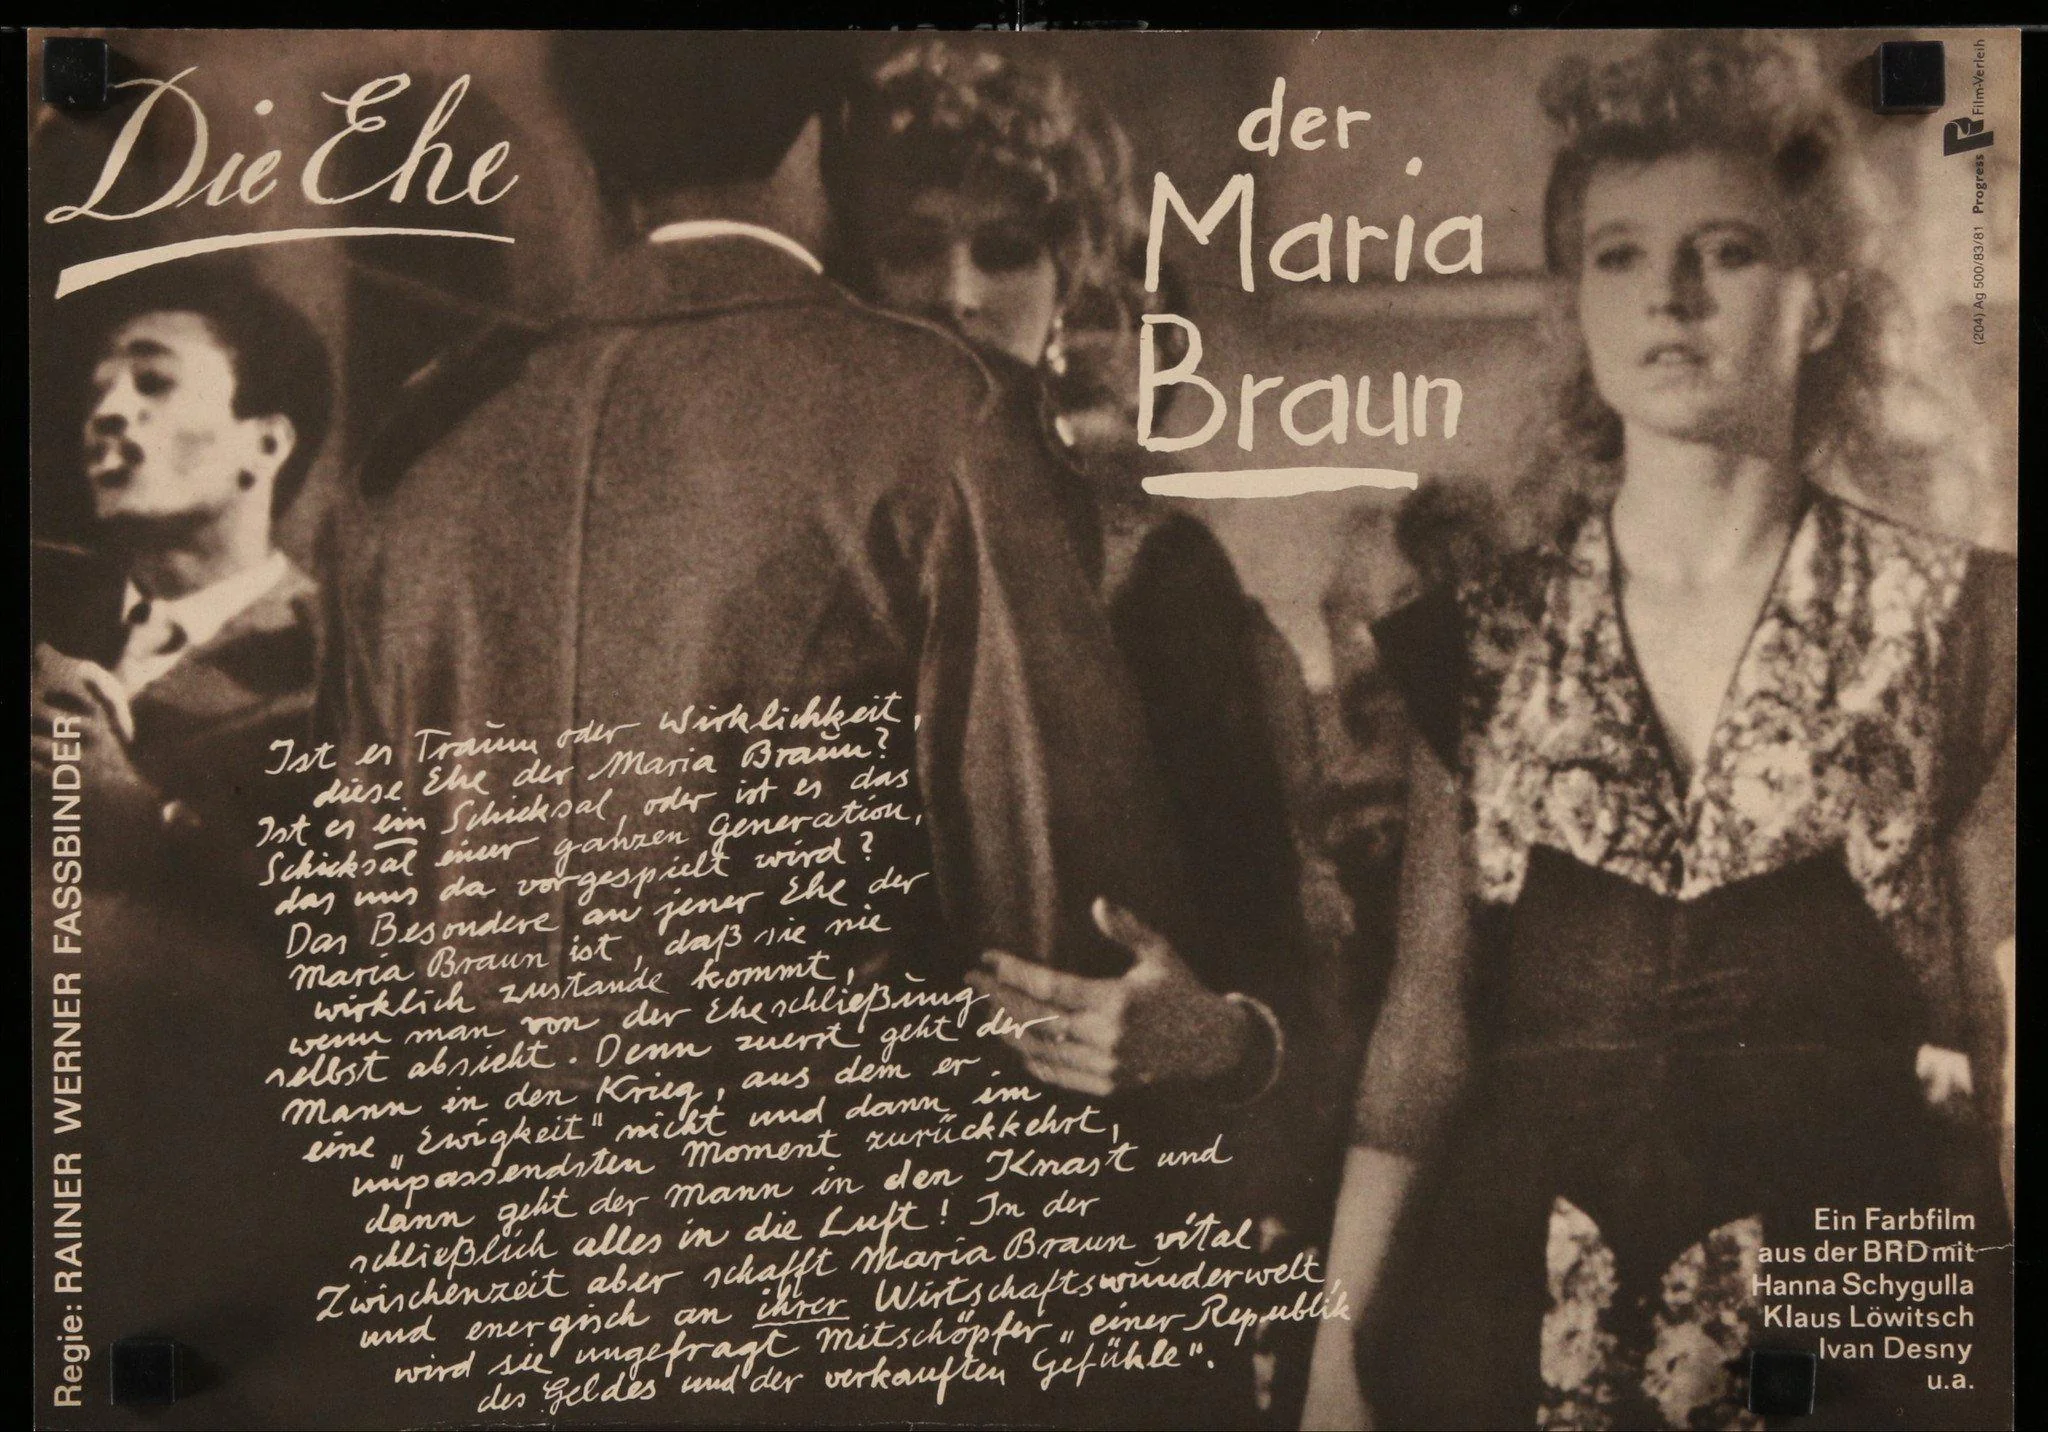 Die Ehe
der
Maria
Braun
Progress Film-Verleih
(204) Ag 500/83/81
Regie: RAINER WERNER FASSBINDER
Ist es Traum oder Wirklichkeit,
diese Ehe der Maria Braun?
Ist es ein Schicksal, oder ist es das
Schicksal einer ganzen Generation,
das uns da vorgespielt wird?
Das Besondere an jener Ehe der
Maria Braun ist, daß sie nie
wirklich zustande kommt,
wenn man von der Eheschließung
selbst absieht. Denn zuerst geht der
Mann in den Krieg, aus dem er
eine „Ewigkeit" nicht und dann im
unpassendsten Moment zurückkehrt,
dann geht der Mann in den Knast und
schließlich alles in die Luft! In der
Zwischenzeit aber schafft Maria Braun vital
und energisch an ihrer Wirtschaftswunderwelt,
wird sie ungefragt Mitschöpfer „einer Republik
des Geldes und der verkauften Gefühle".
Ein Farbfilm
aus der BRD mit
Hanna Schygulla
Klaus Löwitsch
Ivan Desny
u.a.